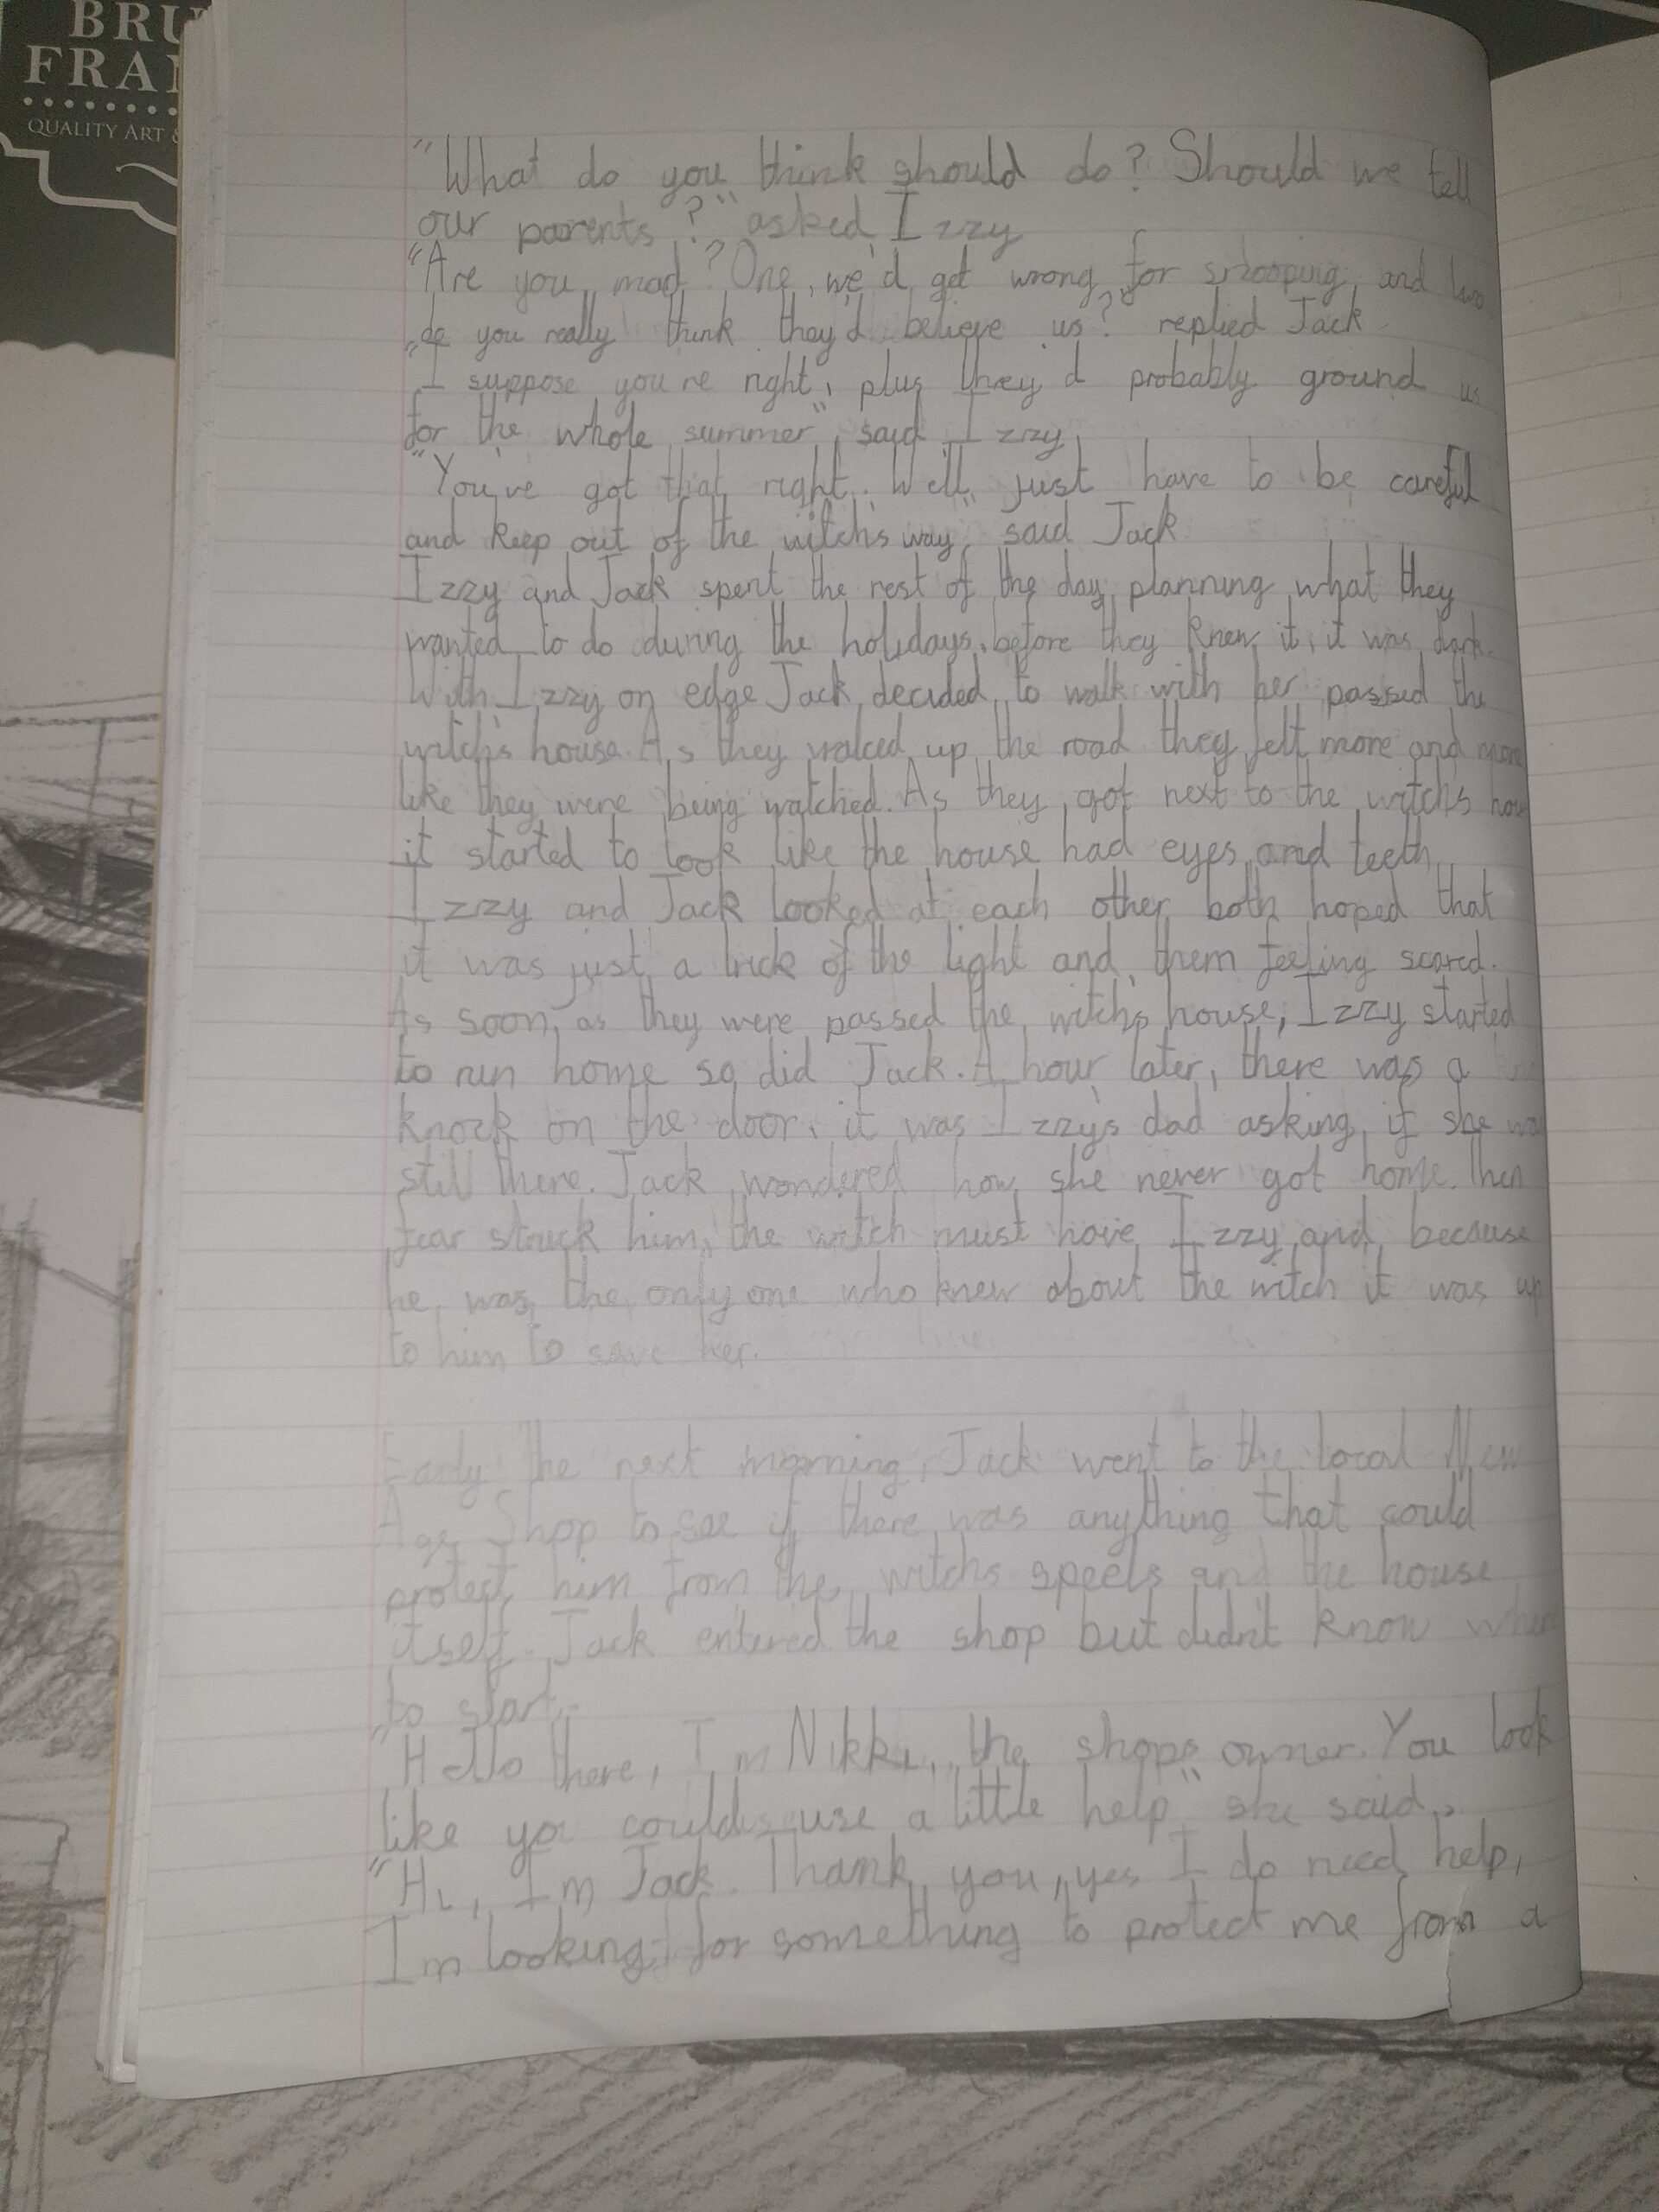 BRU
FRA
QUALITY ART &
"What do you think should do? Should we tell
our parents?" asked Izzy
"Are you mad? One, we'd get wrong for snooping, and two
do you really think they'd believe us?" replied Jack
"I suppose you're right, plus they'd probably ground us
for the whole summer", said Izzy
"You've got that right. We'll just have to be careful
and keep out of the witch's way", said Jack
Izzy and Jack spent the rest of the day planning what they
wanted to do during the holidays, before they knew it, it was dark.
With Izzy on edge Jack decided to walk with her passed the
witch's house. As they walced up the road they felt more and more
like they were being watched. As they got next to the witch's hou
it started to look like the house had eyes and teeth.
Izzy and Jack looked at each other both hoped that
it was just a trick of the light and them feeling scared.
As soon as they were passed the witch's house, Izzy started
to run home so did Jack. A hour later, there was a
knock on the door, it was Izzy's dad asking if she was
still there. Jack wondered how she never got home. Then
fear struck him, the witch must have Izzy and because
he was the only one who knew about the witch it was up
to him to save her.
Early the next morning, Jack went to the local New
Age Shop to see if there was anything that could
protect him from the witchs speels and the house
itself. Jack entered the shop but didn't know where
to start.
"Hello there, I'm Nikki, the shops owner. You look
like you could use a little help" she said.
"Hi, I'm Jack. Thank you, yes I do need help,
I'm looking for something to protect me from a